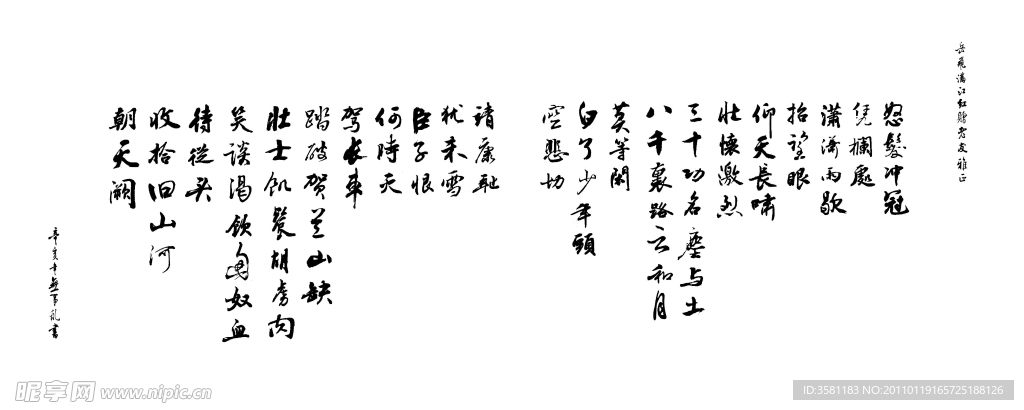 岳飛滿江紅贈老友雅正
怒髮冲冠
凭欄處
瀟瀟雨歇
抬望眼
仰天長嘯
壯懷激烈
三十功名塵与土
八千裏路云和月
莫等閑
白了少年頭
空悲切
靖康耻
犹未雪
臣子恨
何時天
駕長車
踏破賀兰山缺
壯士飢餐胡虜肉
笑談渴飲匈奴血
待從头
收拾旧山河
朝天闕
辛亥年書
昵享网 www.nipic.cn
ID:3581183 NO:20110119165725188126